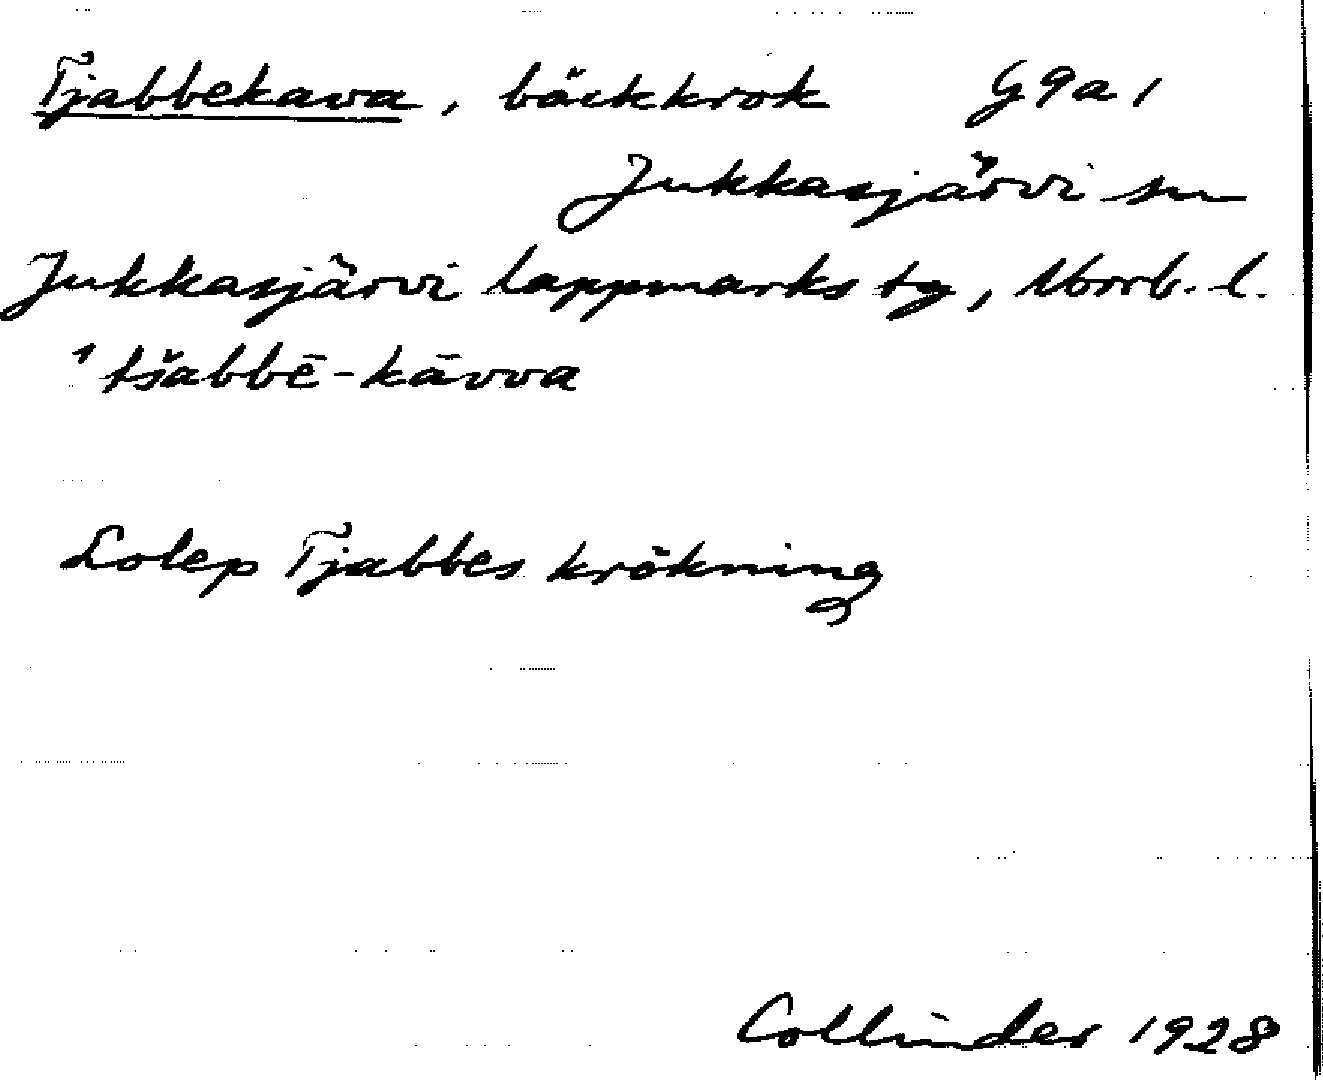 Tjabbekava, bäckkrok G9a1
Jukkasjärvi sn
Jukkasjärvi lappmarks tg, Norrb. l.
'tšabbē-kāvva
Lolep Tjabbes krökning
Collinder 1928